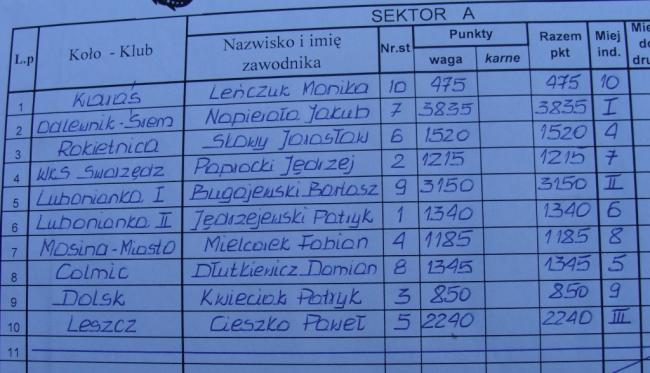 SEKTOR A
L.p Koło - Klub Nazwisko i imię zawodnika Nr.st Punkty waga karne Razem pkt Miej ind.
1 Klaraś Leńczuk Monika 10 475 475 10
2 Dalewnik-Śrem Napierała Jakub 7 3835 3835 I
3 Rokietnica Słowy Jarosław 6 1520 1520 4
4 WKS Swarzędz Paprocki Jędrzej 2 1215 1215 7
5 Lubonianka I Bugajewski Bartosz 9 3150 3150 II
6 Lubonianka II Jędrzejewski Patryk 1 1340 1340 6
7 Mosina-Miasto Mielcarek Fabian 4 1185 1185 8
8 Colmic Dłutkiewicz Damian 8 1345 1345 5
9 Dolsk Kwieciak Patryk 3 850 850 9
10 Leszcz Cieszko Paweł 5 2240 2240 III
11